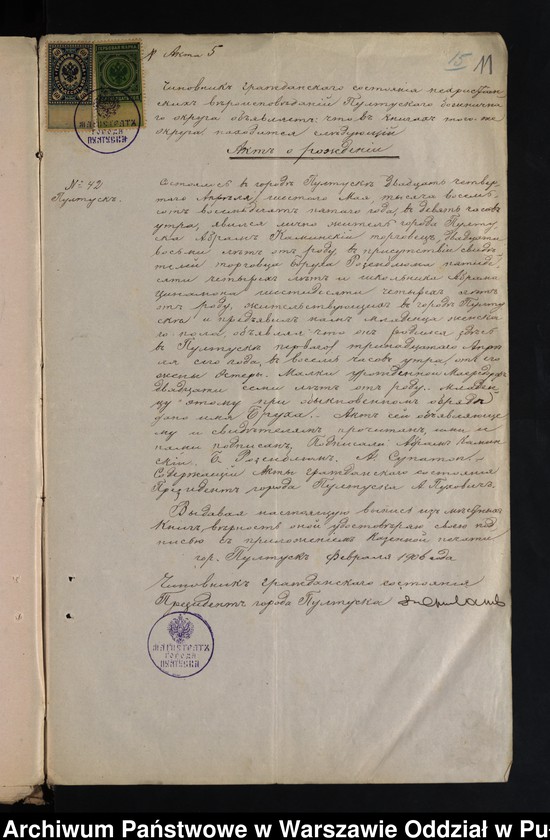 N Акта 5
15 11
Чиновникъ гражданскаго состоянія нехристіан
скихъ вѣроисповѣданій Пултускаго божнична
го округа объявляетъ что въ книгахъ того же
округа находится слѣдующій
Актъ о рожденіи
№ 42
Пултускъ.
Состоялся въ городѣ Пултускѣ двадцать четвер
таго Апрѣля /шестого Мая, тысяча восемь
сотъ восемьдесятъ пятаго года, въ девять часовъ
утра, явился лично житель города Пулту
ска Абрамъ Каминскій торговецъ, двадцати
восьми лѣтъ отъ роду, въ присутствіи свидѣ
телей торговца Боруха Розенблюма пятиде
сяти четырехъ лѣтъ и школьника Абрама
шестидесяти четырехъ лѣтъ
отъ роду, жительствующихъ въ городѣ Пулту
скѣ и предъявилъ намъ младенца женска
го пола, объявляя что онъ родился здѣсь
въ Пултускѣ перваго/ тринадцатаго Апрѣ
ля сего года, въ восемь часовъ утра, отъ его
жены Эстеры-Малки урожденной
двадцати семи лѣтъ отъ роду. Младен
цу этому при обыкновенномъ обрядѣ
дано имя Бруха. Актъ сей объявляюще
му и свидѣтелямъ прочитанъ, ими и
нами подписанъ. Подписали: Абрамъ Камин
скій. Б. Розенблюм. А.
Содержащій Акты гражданскаго состоянія
Президентъ города Пултуска А. Пуховичъ.
Выдавая настоящую выпись изъ метричныхъ
книгъ, вѣрность оной удостовѣряю своею под
писью съ приложеніемъ казенной печати
гор. Пултускъ Февраля 1906 года
Чиновникъ гражданскаго состоянія
Президентъ города Пултуска
МАГИСТРАТЪ
ГОРОДА
ПУЛТУСКА
МАГИСТРАТЪ
ГОРОДА
ПУЛТУСКА
Archiwum Państwowe w Warszawie Oddział w Pu